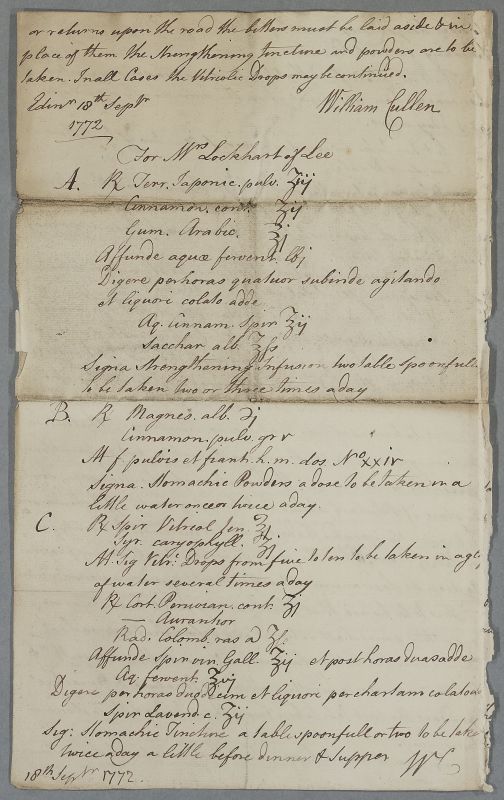 or returns upon the road the bitters must be laid aside & in
place of them the strengthening tincture and powders are to be
taken. In all Cases the Vitriolic Drops may be continued.
Edinr 18th Septr
1772
William Cullen
For Mrs Lockhart of Lee
A. ℞ Terr. Japonic. pulv. ʒij
Cinnamon. cont. ʒij
Gum. Arabic. ʒj
Affunde aquæ fervent. lbj
Digere per horas quatuor subinde agitando
et liquori colato adde
Aq. Cinnam. Spir. ℥ij
Sacchar. alb. ℥fs
Signa Strengthening Infusion two table spoonfulls
to be taken two or three times a day
B. ℞ Magnes. alb. ℈j
Cinnamon. pulv. gr v
M. f. pulvis et fiant. h. m. dos. No XXIV
Signa. Stomachic Powders a dose to be taken in a
little water once or twice a day.
C. ℞ Spir. Vitriol. ten.
Syr. caryophyll. ℥j
M. Sig Vitr: Drops from five to ten to be taken in a
of water several times a day
℞ Cort. Peruvian. cont. ℥j
— Aurantior
Rad. Colomb. ras a
Affunde Spir vin. Gall. ℥ij et post horas duas adde
Aq. fervent.
Digere per horas duodecim et liquori per chartam colato
Spir Lavend. c. ℥ij
Sig: Stomachic Tincture a table spoonfull or two to be take
twice a day a little before dinner & supper
WC
18th Septr 1772.